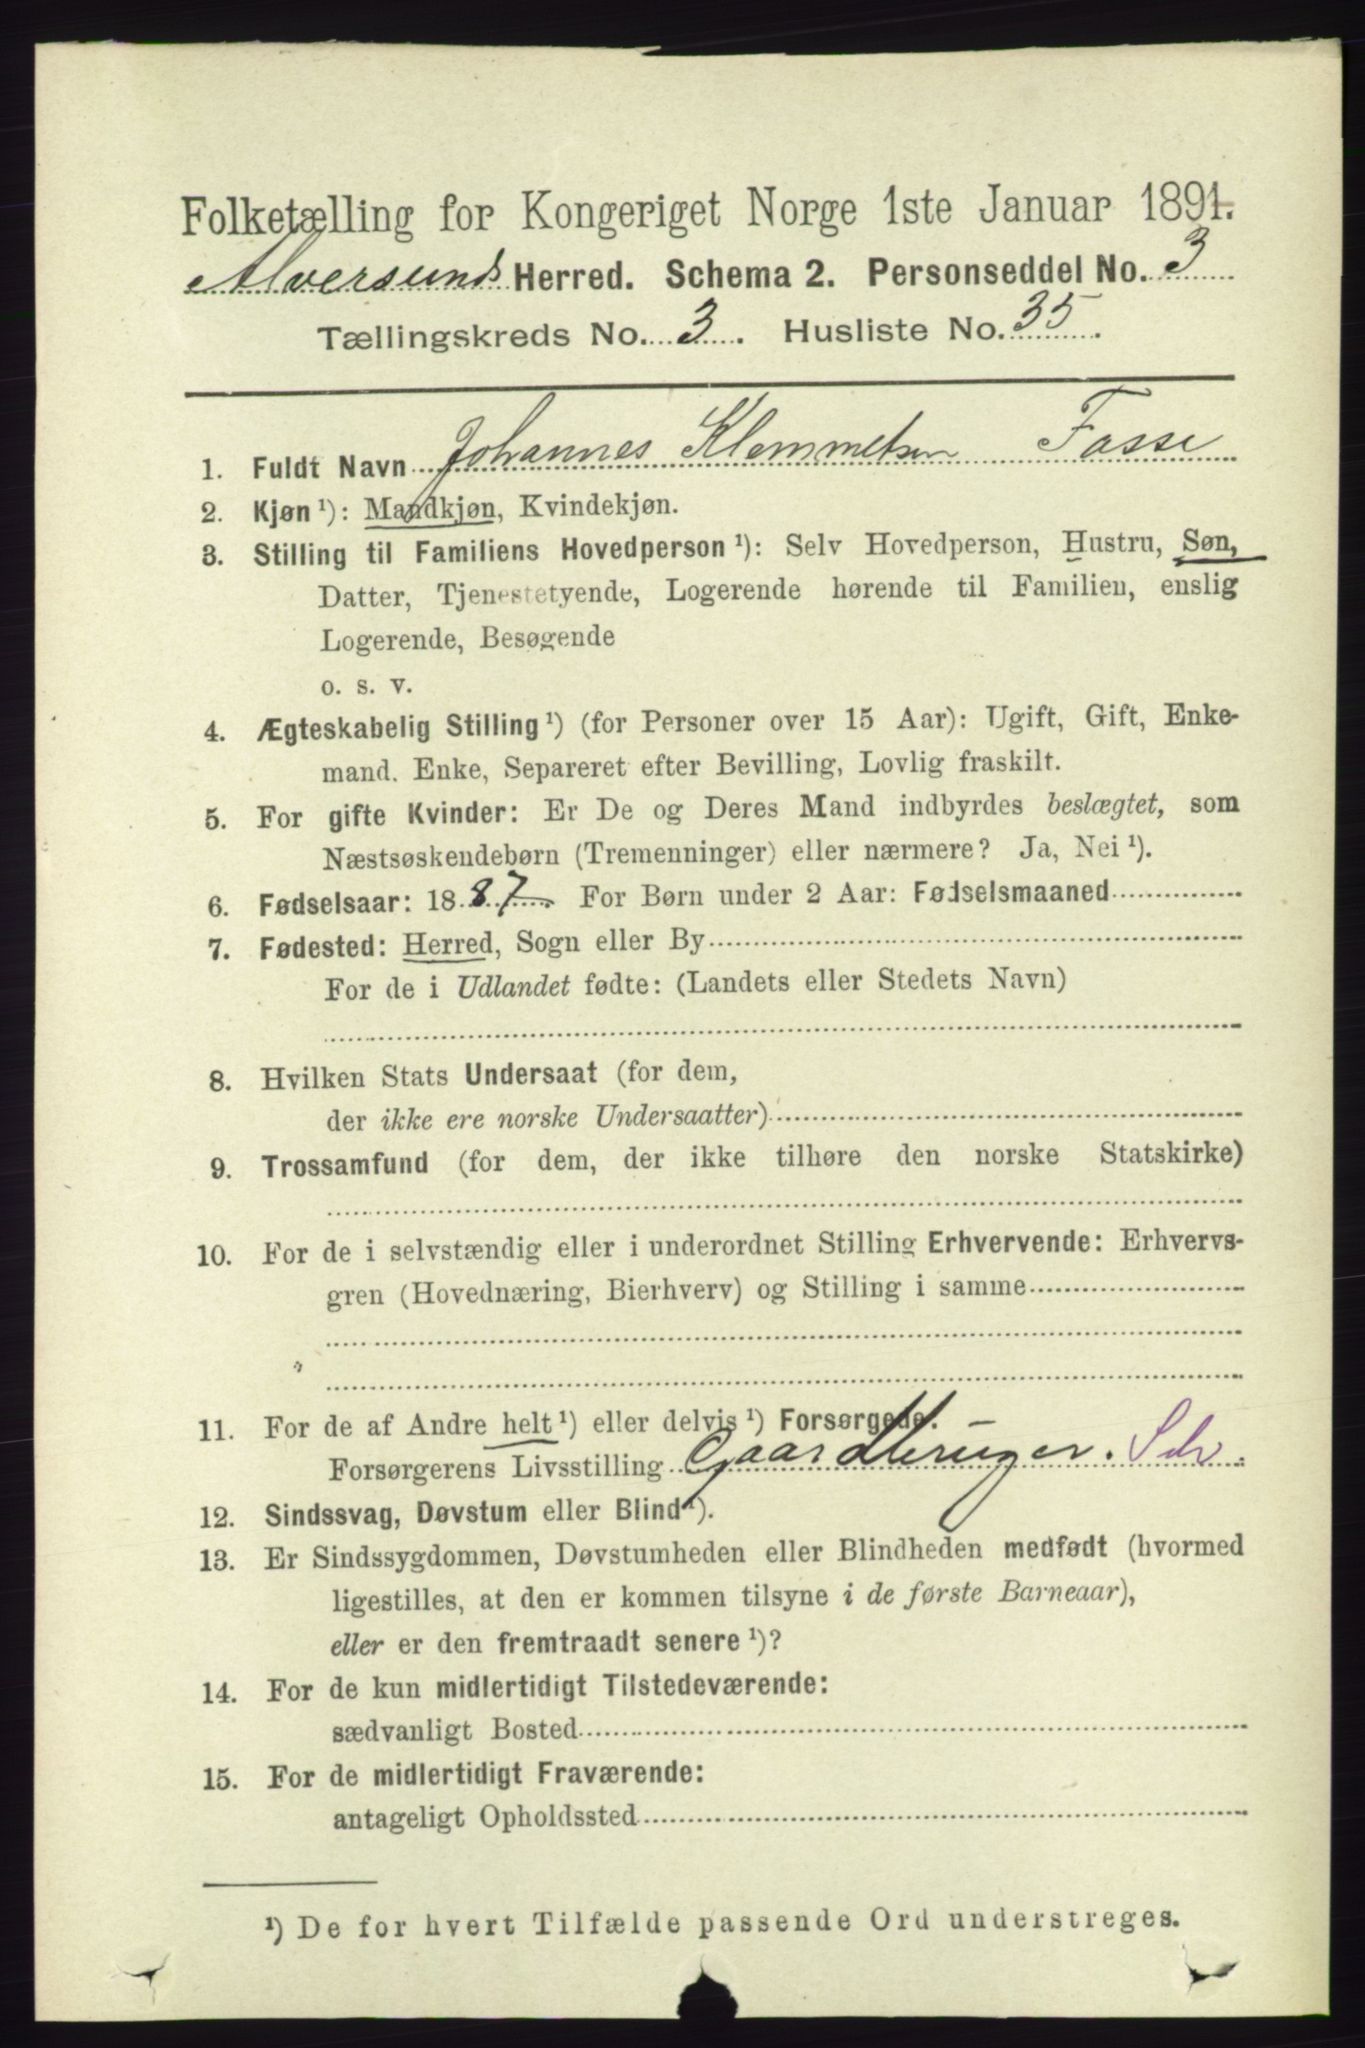 Folketælling for Kongeriget Norge 1ste Januar 1891.
Alversund Herred. Schema 2. Personseddel No. 3
Tællingskreds No. 3. Husliste No. 35.
1. Fuldt Navn Johannes Klemmetsen Fosse
2. Kjøn ¹): Mandkjøn, Kvindekjøn.
3. Stilling til Familiens Hovedperson ¹): Selv Hovedperson, Hustru, Søn,
Datter, Tjenestetyende, Logerende hørende til Familien, enslig
Logerende, Besøgende
o. s. v.
4. Ægteskabelig Stilling ¹) (for Personer over 15 Aar): Ugift, Gift, Enke-
mand. Enke, Separeret efter Bevilling, Lovlig fraskilt.
5. For gifte Kvinder: Er De og Deres Mand indbyrdes beslægtet, som
Næstsøskendebørn (Tremenninger) eller nærmere? Ja, Nei ¹).
6. Fødselsaar: 1887. For Børn under 2 Aar: Fødselsmaaned
7. Fødested: Herred, Sogn eller By
For de i Udlandet fødte: (Landets eller Stedets Navn)
8. Hvilken Stats Undersaat (for dem,
der ikke ere norske Undersaatter)
9. Trossamfund (for dem, der ikke tilhøre den norske Statskirke)
10. For de i selvstændig eller i underordnet Stilling Erhvervende: Erhvervs-
gren (Hovednæring, Bierhverv) og Stilling i samme
11. For de af Andre helt ¹) eller delvis ¹) Forsørgede.
Forsørgerens Livsstilling Gaardbruger. Selv.
12. Sindssvag, Døvstum eller Blind ¹).
13. Er Sindssygdommen, Døvstumheden eller Blindheden medfødt (hvormed
ligestilles, at den er kommen tilsyne i de første Barneaar),
eller er den fremtraadt senere ¹)?
14. For de kun midlertidigt Tilstedeværende:
sædvanligt Bosted
15. For de midlertidigt Fraværende:
antageligt Opholdssted
¹) De for hvert Tilfælde passende Ord understreges.